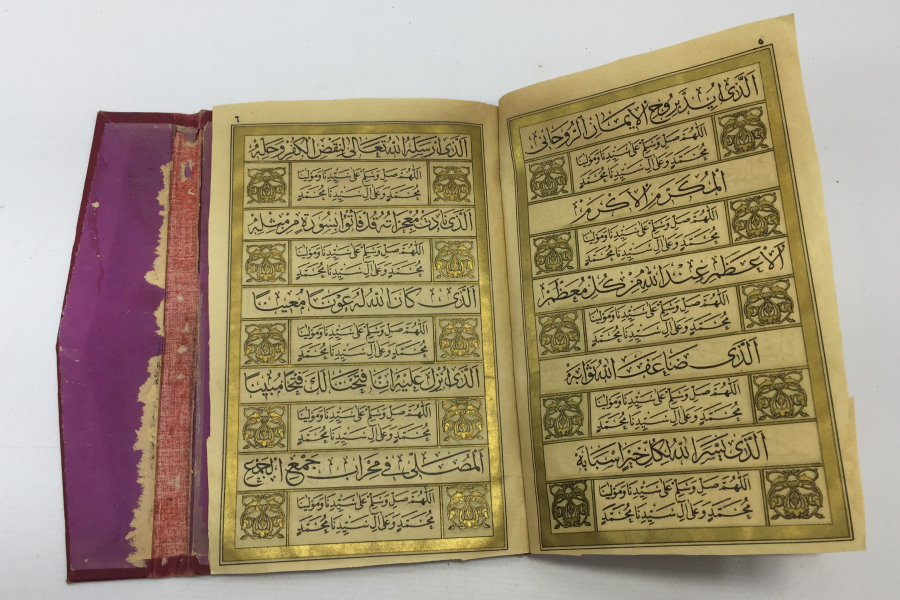 ٥
الذى ايد بروح الايمان الروحانى
اللهم صل وسلم على سيدنا ومولينا
محمد وعلى آل سيدنا محمد
المكرم الاكرم
اللهم صل وسلم على سيدنا ومولينا
محمد وعلى آل سيدنا محمد
الاعظم عند الله من كل معظم
اللهم صل وسلم على سيدنا ومولينا
محمد وعلى آل سيدنا محمد
الذى ضاعف الله ثوابه
اللهم صل وسلم على سيدنا ومولينا
محمد وعلى آل سيدنا محمد
الذى يسر الله لكل خير اسبابه
اللهم صل وسلم على سيدنا ومولينا
محمد وعلى آل سيدنا محمد
٦
الذى ارسله الله تعالى لنقض الكفر وحله
اللهم صل وسلم على سيدنا ومولينا
محمد وعلى آل سيدنا محمد
الذى نادت معجزاته قل فاتوا بسورة من مثله
اللهم صل وسلم على سيدنا ومولينا
محمد وعلى آل سيدنا محمد
الذى كان الله له عونا معينا
اللهم صل وسلم على سيدنا ومولينا
محمد وعلى آل سيدنا محمد
الذى انزل عليه انا فتحنا لك فتحا مبينا
اللهم صل وسلم على سيدنا ومولينا
محمد وعلى آل سيدنا محمد
المصلى فى محراب جمع الجمع
اللهم صل وسلم على سيدنا ومولينا
محمد وعلى آل سيدنا محمد